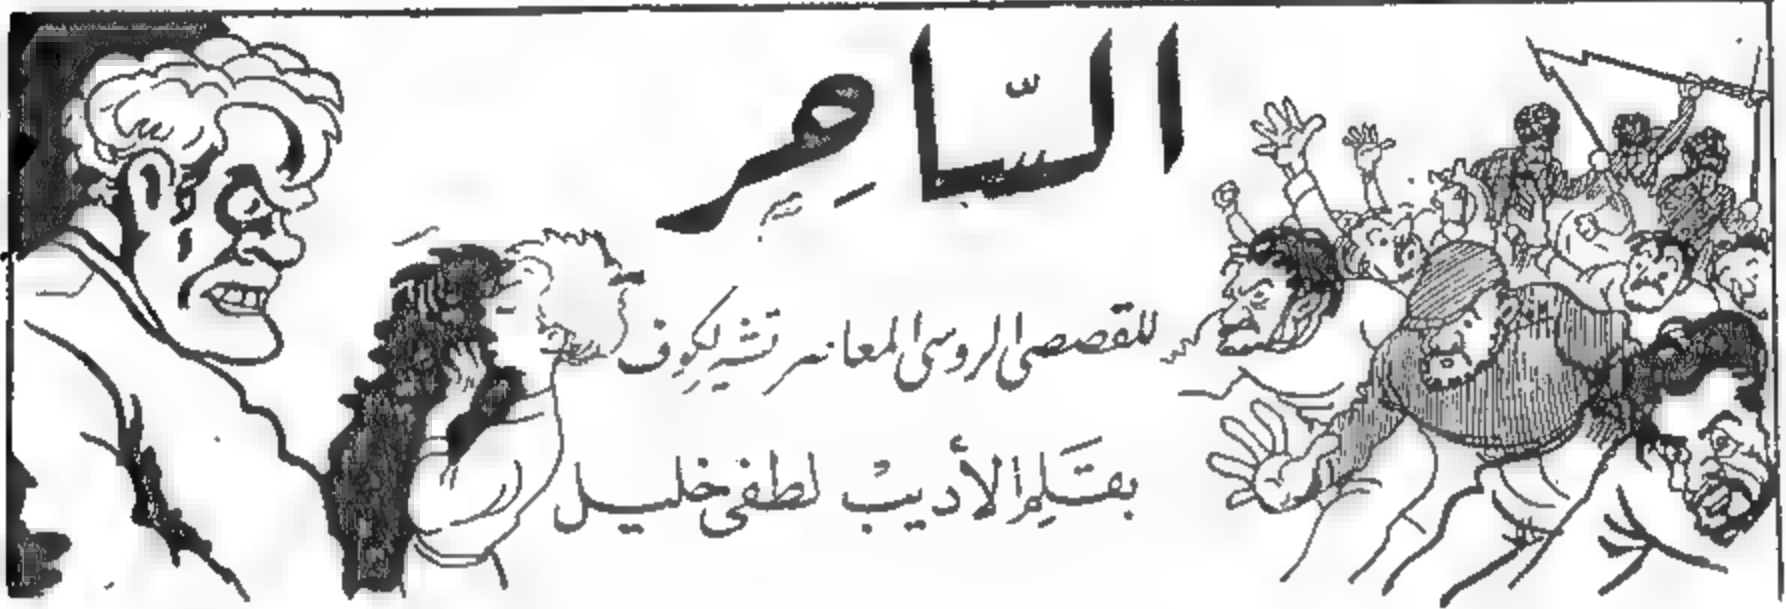 السّاحِر
للقصصى الروسى المعاصر تشيريكوف
بقَلِم الأديبْ لطفى خليل